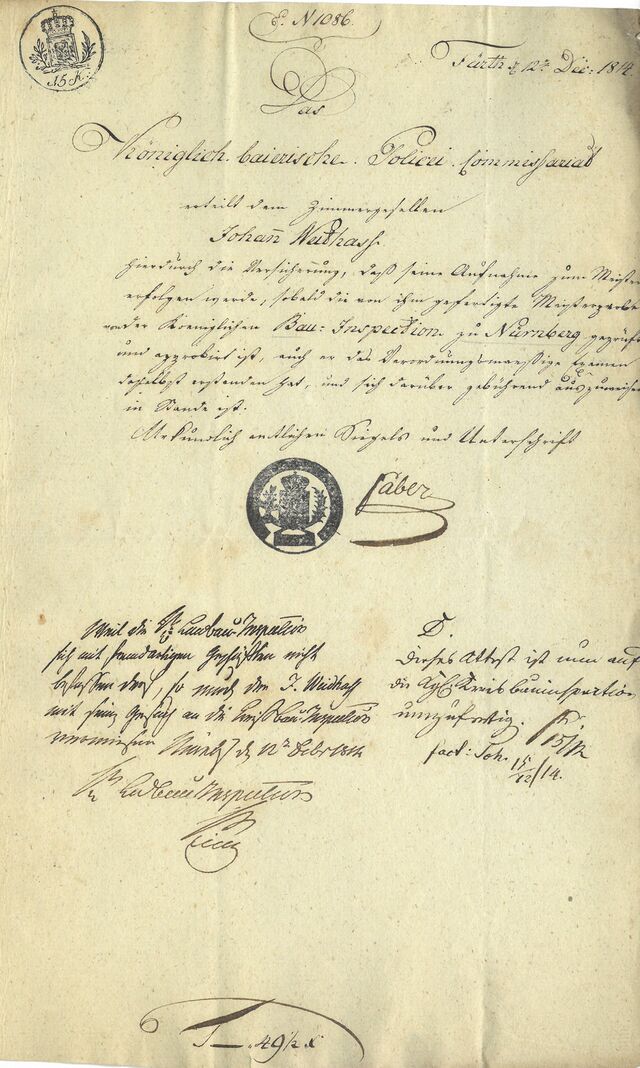 E. N 1086.
15 K.
Fürth d 12ten Dec: 1814.
Das
Königlich. baierische. Policei. Commissariat
erteilt dem Zimmergesellen
Johann Weithass
hierdurch die Versicherung, daß seine Aufnahme zum Meister
erfolgen werde, sobald die von ihm gefertigte Meisterprobe
von der Koeniglichen Bau-Inspection zu Nürnberg geprüft
und approbirt ist, auch er das Verordnungsmaessige Examen
daselbst erstanden hat, und sich darüber gebührend auszuweisen
in Stande ist.
Urkundlich amtlichen Siegels und Unterschrift
Faber
Weil die Landbau-Inspection
sich mit Geschäften nicht
befassen darf, so muß der J. Weidhaß
mit sein Gesuch an die Kreisbau-Inspection
verwiesen d 12n Decbr 1814
Landbau Inspection
D.
Dieses Attest ist nun auf
die Kgl. Kreisbauinspection
umzufertig.
15/12
fact: 15/12/14.
49½ x